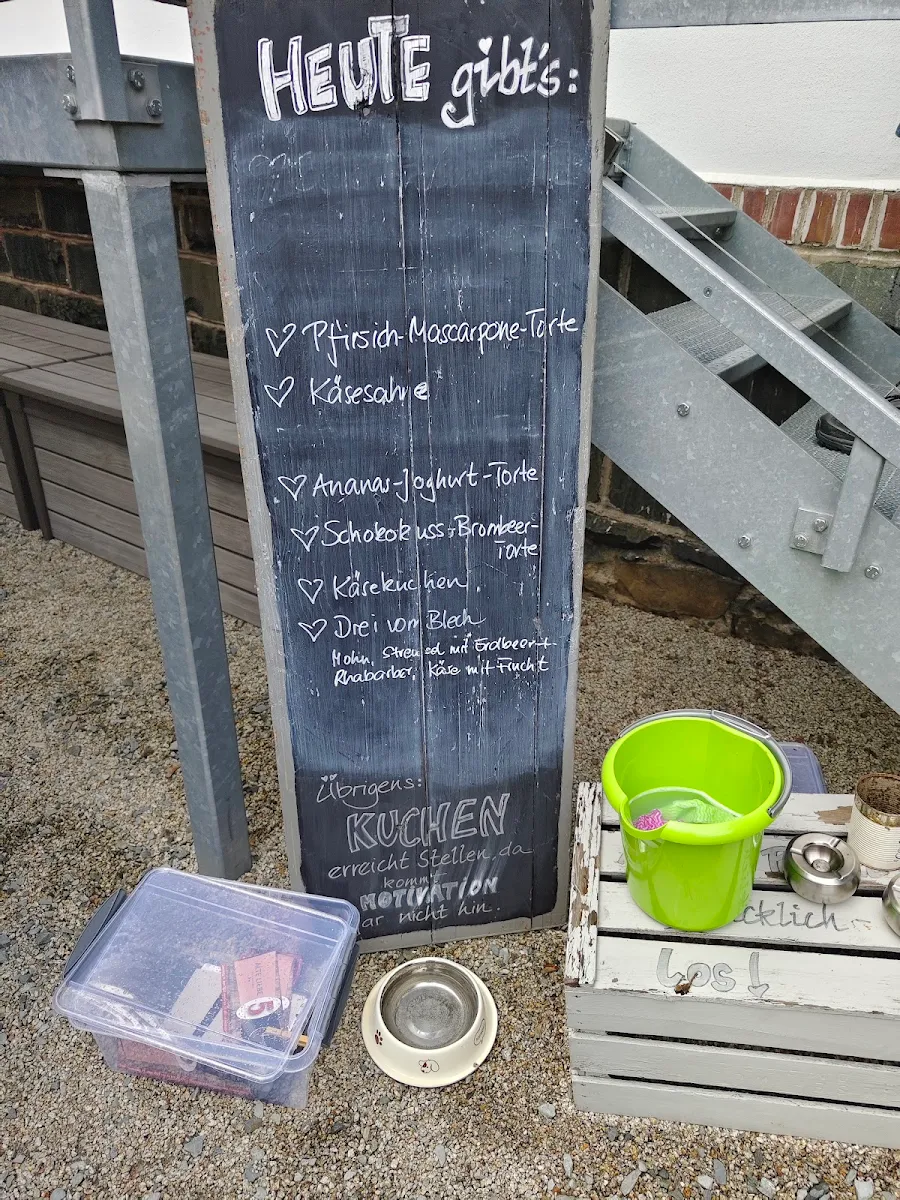 HEUTE gibt's:
Pfirsich-Mascarpone-Torte
Käsesahne
Ananas-Joghurt-Torte
Schokokuss-Brombeer-
Torte
Käsekuchen
Drei vom Blech
Mohn, Streusel mit Erdbeer+
Rhabarber, Käse mit Frucht
Übrigens:
KUCHEN
erreicht Stellen, da
kommt
MOTIVATION
ar nicht hin.
cklich
Los!